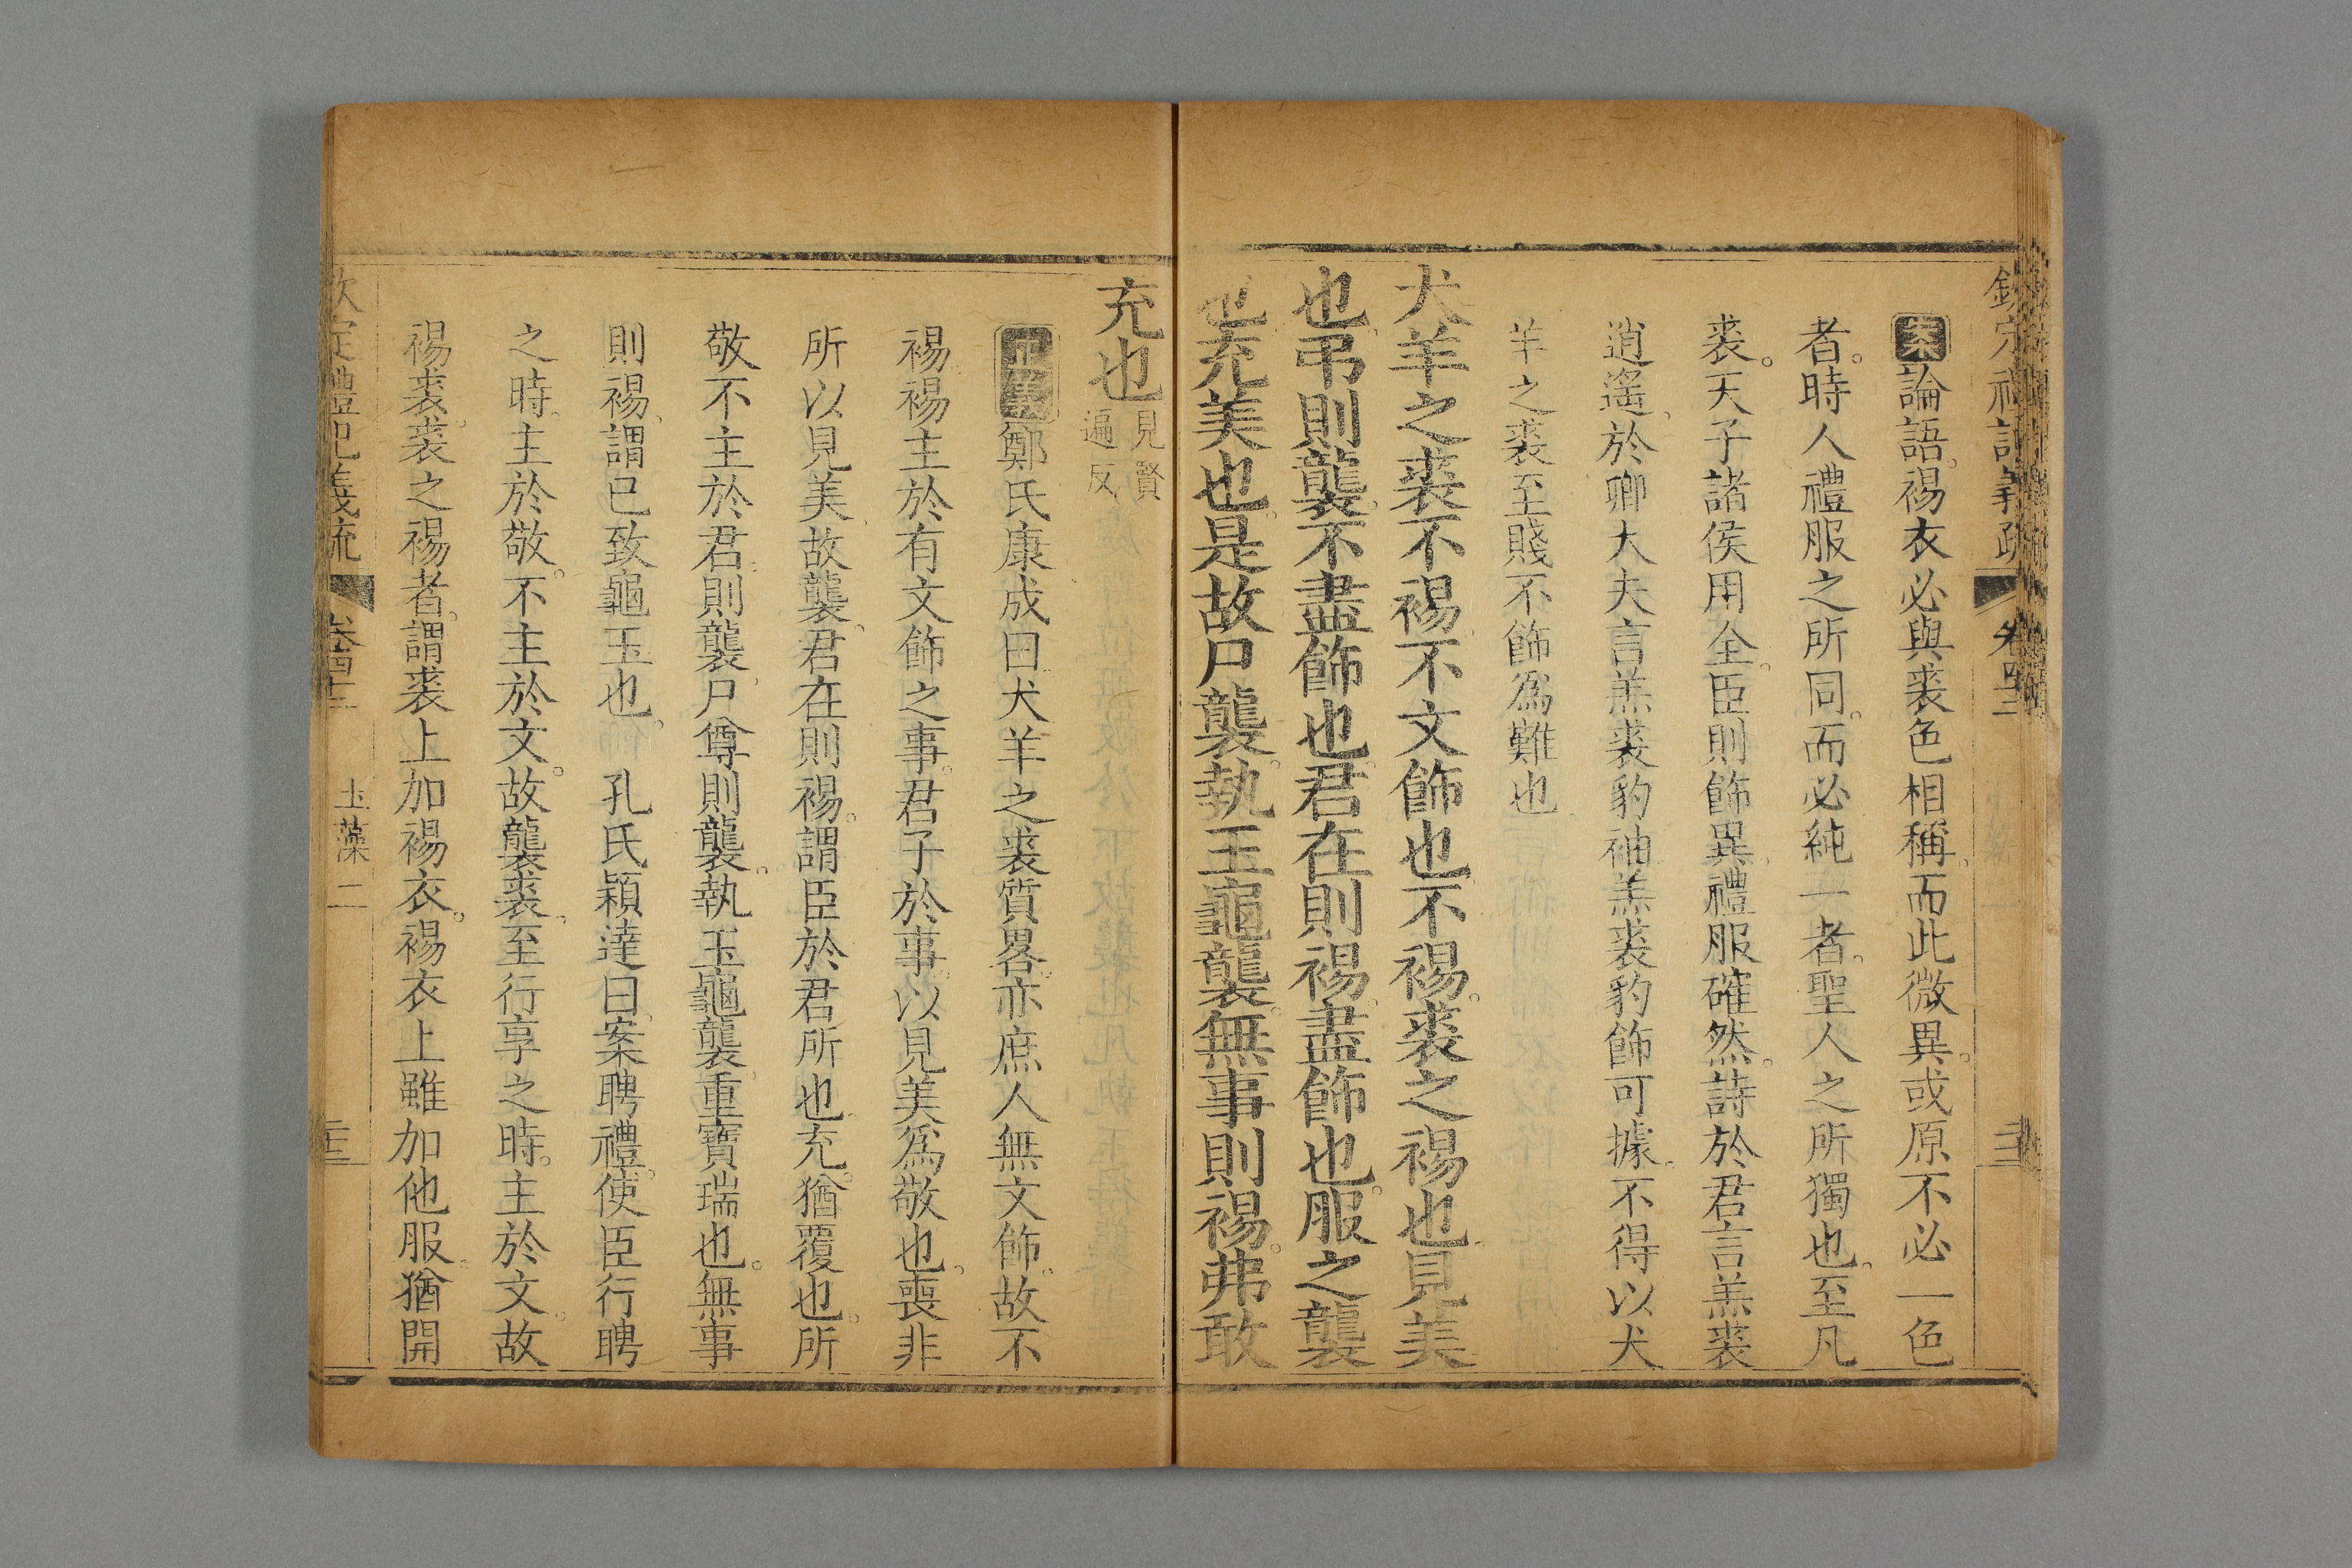 欽定禮記義疏 卷四十二
案論語裼衣必與裘色相稱。而此微異。或原不必一色
者。時人禮服之所同。而必純一者。聖人之所獨也。至凡
裘。天子諸侯用全。臣則飾異。禮服確然。詩於君言羔裘
逍遙。於卿大夫言羔裘豹袖羔裘豹飾可據。不得以犬
羊之裘至賤不飾爲難也
犬羊之裘不裼。不文飾也。不裼。裘之裼也。見美
也。弔則襲。不盡飾也。君在則裼。盡飾也。服之襲
也。充美也。是故尸襲。執玉龜襲。無事則裼。弗敢
充也 見賢
遍反
正義鄭氏康成曰犬羊之裘質畧。亦庶人無文飾。故不
裼。裼主於有文飾之事。君子於事以見美爲敬也。喪非
所以見美。故襲。君在則裼。謂臣於君所也。充。猶覆也。所
敬不主於君。則襲。尸尊則襲。執玉龜襲。重寶瑞也。無事
則裼。謂已致龜玉也。 孔氏穎達曰。案聘禮。使臣行聘
之時。主於敬。不主於文。故襲裘。至行享之時。主於文。故
裼裘。裘之裼者。謂裘上加裼衣。裼衣上雖加他服。猶開
欽定禮記義疏 卷四十二 玉藻二